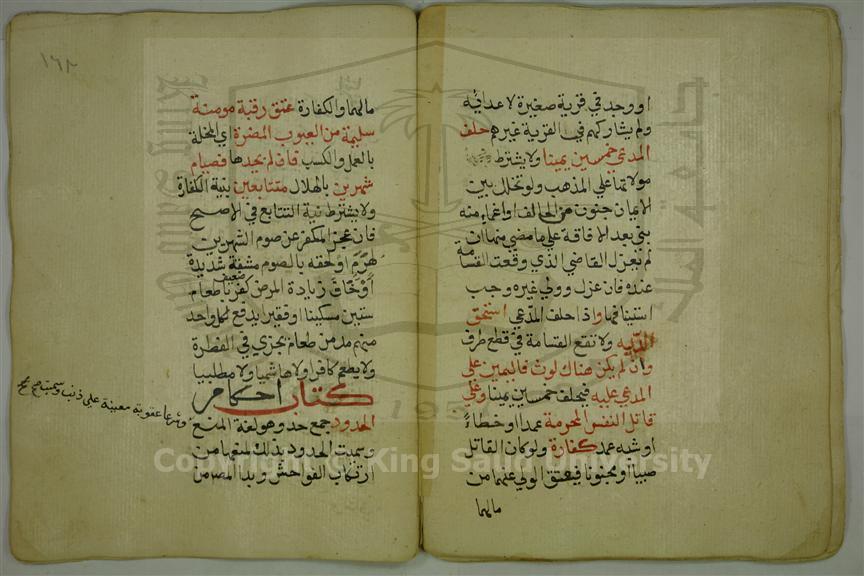 او وجد في قرية صغيرة لاعدائه
ولم يشاركهم في القرية غيرهم حلف
المدعي خمسين يمينا ولا يشترط
موالاتها علي المذهب ولو تخلل بين
الايمان جنون من الحالف او اغماء منه
بني بعد الافاقة علي ما مضي منها ان
لم يعزل القاضي الذي وقعت القسامة
عنده فان عزل وولي غيره وجب
استينافها واذا حلف المدعي استحق
الدية ولا تقع القسامة في قطع طرف
وان لم يكن هناك لوث فاليمين علي
المدعي عليه فيحلف خمسين يمينا وعلي
قاتل النفس المحرمة عمدا او خطاء
او شبه عمد كفارة ولو كان القاتل
صبيا او مجنونا فيعتق الولي عنهما من
مالهما
١٦٢
مالهما والكفارة عتق رقبة مومنة
سليمة من العيوب المضرة اي المخلة
بالعمل والكسب فان لم يجدها فصيام
شهرين بالهلال متتابعين بنية الكفارة
ولا يشترط نية التتابع في الاصح
فان عجز المكفر عن صوم الشهرين
لهرم او لحقه بالصوم مشقة شديدة
او خاف زيادة المرض كفر باطعام
ستين مسكينا او فقيرا يدفع لكل واحد
منهم مد من طعام يجزي في الفطرة
ولا يطعم كافرا ولا هاشميا ولا مطلبيا
كتاب احكام
الحدود جمع حد وهو لغة المنع
وسميت الحدود بذلك لمنعها من
ارتكاب الفواحش وبدا المصنف
وشرعا عقوبة معينة علي ذنب وسميت صح
Copyright © King Saud University
1957